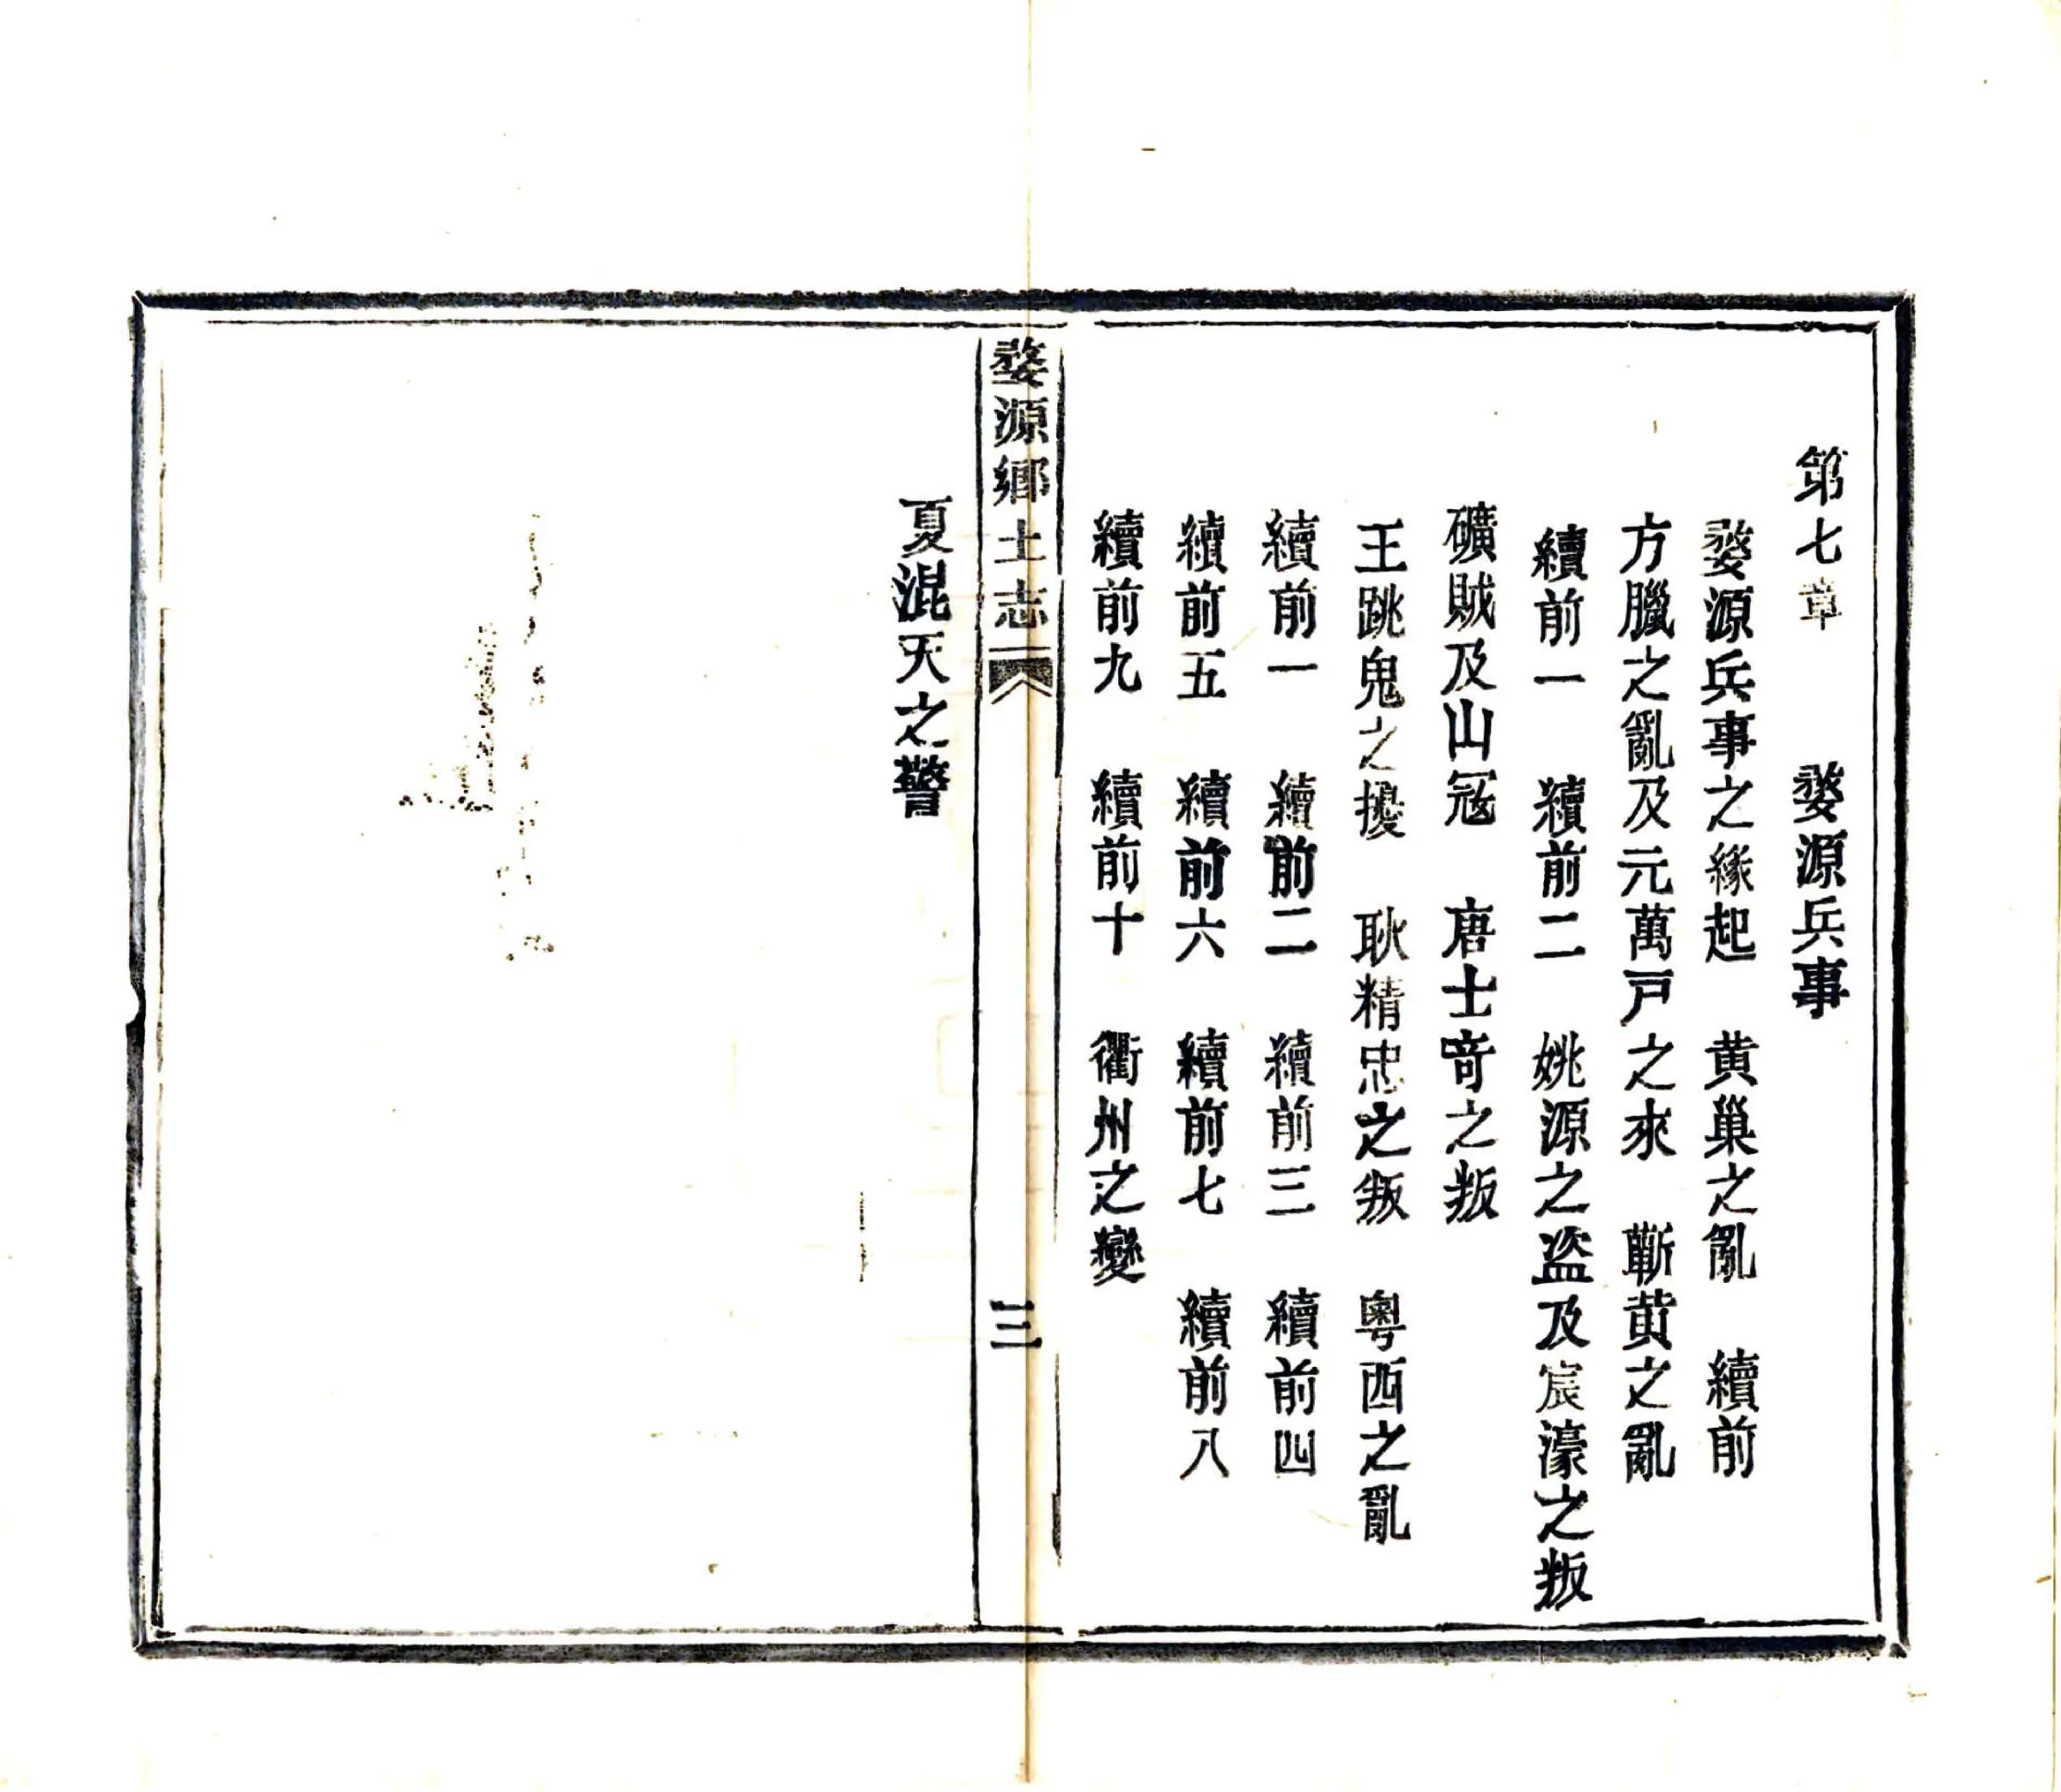 第七章　婺源兵事
婺源兵事之緣起　黄巢之亂　續前
方臘之亂及元萬戸之來　蘄黄之亂
續前一　續前二　姚源之盗及宸濠之叛
礦賊及山冦　唐士竒之叛
王跳鬼之擾　耿精忠之叛　粤西之亂
續前一　續前二　續前三　續前四
續前五　續前六　續前七　續前八
續前九　續前十　衢州之變
婺源鄉土志
三
夏混天之警